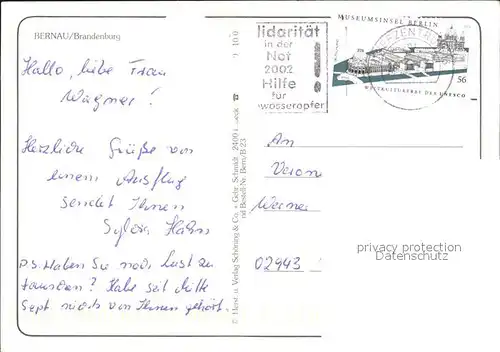 BERNAU/Brandenburg
Hallo, liebe Frau
Wagner!
Herzliche Grüße von
einem Ausflug
sendet Ihnen
Sylvia Hahn
P.S. Haben Sie noch Lust zu
tauschen? Habe seit Mitte
Sept. nichts von Ihnen gehört.
© Herst. u. Verlag Schöning & Co. + Gebr. Schmidt, 2400
nd Bestell-Nr. Bern/B 23
lidarität
in der
Not
2002
Hilfe
für
wasseropfer
MUSEUMSINSEL BERLIN
EFZENTR
56
WELTKULTURERBE DER UNESCO
An
Veron
Werner
02943
privacy protection
Datenschutz